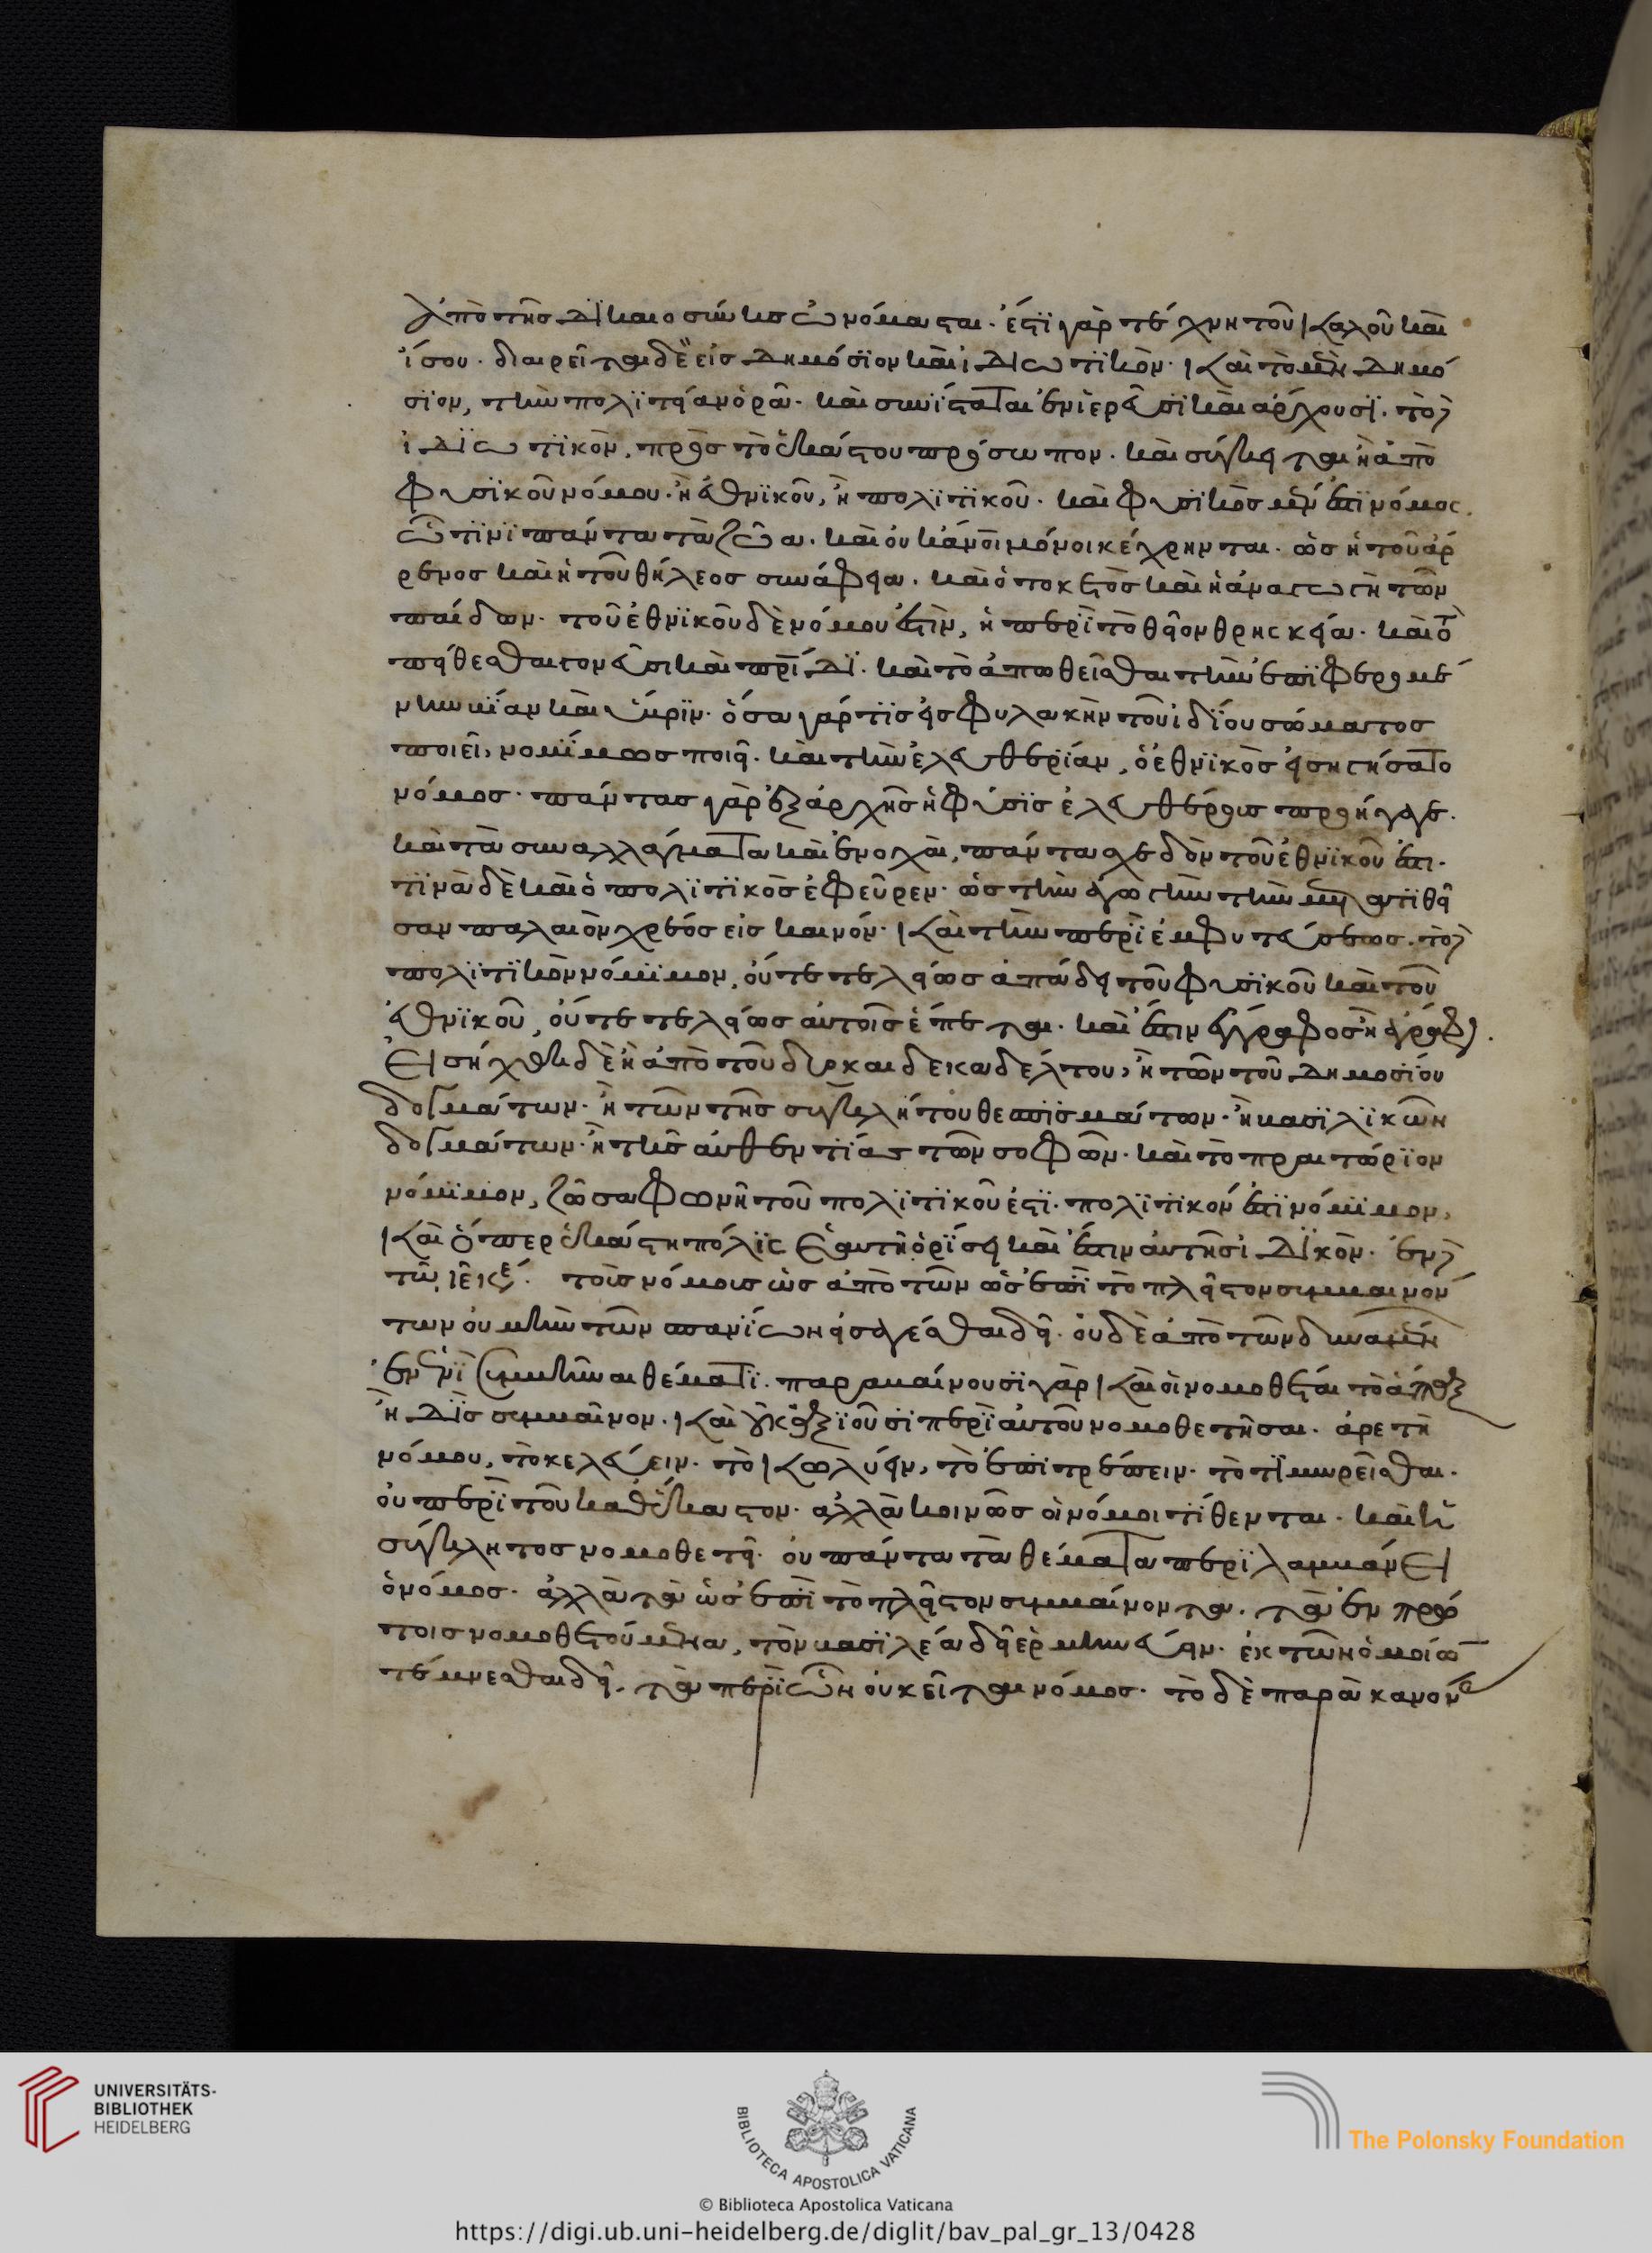 ἀπὸ τῆς δικαιοσύνης ὠνόμασται. ἔστι γὰρ τέχνη τοῦ καλοῦ καὶ
ἴσου. διαιρεῖται δὲ εἰς δημόσιον καὶ ἰδιωτικόν. καὶ τὸ μὲν δημό
σιον, τὴν πολιτείαν ὁρᾶ. καὶ συνίσταται ἐν ἱερεῦσι καὶ ἄρχουσι. τὸ
ἰδιωτικὸν, πρὸς τὸ ἑκάστου πρόσωπον. καὶ σύγκειται ἢ ἀπὸ
φυσικοῦ νόμου. ἢ ἐθνικοῦ, ἢ πολιτικοῦ. καὶ φυσικὸς μέν ἐστι νόμος.
ὧτινι πάντα τὰ ζῶα. καὶ οὐκ ἄνοι μόνοι κέχρηνται. ὡς ἡ τοῦ ἄρ
ρενος καὶ ἡ τοῦ θήλεος συνάφεια. καὶ ὁ τοκετὸς καὶ ἡ ἀναγωγὴ τῶν
παίδων. τοῦ ἐθνικοῦ δὲ νόμου ἐστὶν, ἡ περὶ τὸ θεῖον θρησκεία. καὶ τὸ
πείθεσθαι γονεῦσι καὶ πρίδι. καὶ τὸ ἀπωθεῖσθαι τὴν ἐπιφερομέ
νην βίαν καὶ ὕβριν. ὅσα γάρ τις εἰς φυλακὴν τοῦ ἰδίου σώματος
ποιεῖ, νομίμως ποιεῖ. καὶ τὴν ἐλευθερίαν, ὁ ἐθνικὸς εἰσηγήσατο
νόμος. πάντας γὰρ ἐξ ἀρχῆς ἡ φύσις ἐλευθέρους προήγαγε.
καὶ τὰ συναλλάγματα καὶ ἐνοχαὶ, πάντα σχεδὸν τοῦ ἐθνικοῦ ἐστι.
τινὰ δὲ καὶ ὁ πολιτικὸς ἐφεῦρεν. ὡς τὴν ἀγωγὴν τὴν μετατιθεῖ
σαν παλαιὸν χρέος εἰς καινόν. καὶ τὴν περὶ ἐμφυτεύσεως. τὸ
πολιτικὸν νόμιμον, οὔτε τελείως ἀπάδει τοῦ φυσικοῦ καὶ τοῦ
ἐθνικοῦ, οὔτε τελείως αὐτοῖς ἕπεται. καὶ ἔστιν ἔγγραφος ἢ ἄγραφ.
Εἰσήχθη δὲ ἢ ἀπὸ τοῦ δυοκαιδεκαδέλτου, ἢ τῶν τοῦ δημοσίου
δογμάτων. ἢ τῶν τῆς συγκλήτου θεσπισμάτων. ἢ βασιλικῶν
δογμάτων. ἢ τῆς αὐθεντίας τῶν σοφῶν. καὶ τὸ πραιτώριον
νόμιμον, ζῶσα φωνὴ τοῦ πολιτικοῦ ἐστι. πολιτικόν ἐστι νόμιμον,
καὶ ὅπερ ἑκάστη πόλις ἑαυτῇ ὁρίσει καὶ ἔστιν αὐτῆς ἰδικόν. ἐν
τοῖς νόμοις ὡς ἀπὸ τῶν ὡς ἐπὶ τὸ πλεῖστον συμβαινόν
των οὐ μὴν τῶν σπανίων εἰσάγεσθαι δεῖ. οὐδὲ ἀπὸ τῶν δυναμένων
ἐν ἑνὶ συμβῆναι θέματι. παραβαίνουσι γὰρ καὶ οἱ νομοθέται τὸ ἅπαξ
ἢ δὶς συμβαῖνον. καὶ οὐκ ἀξιοῦσι περὶ αὐτοῦ νομοθετῆσαι. ἀρετὴ
νόμου, τὸ κελεύειν. τὸ κωλύειν, τὸ ἐπιτρέπειν. τὸ τιμωρεῖσθαι.
οὐ περὶ τοῦ καθέκαστον. ἀλλὰ κοινῶς οἱ νόμοι τίθενται. καὶ ἡ
σύγκλητος νομοθετεῖ. οὐ πάντα τὰ θέματα περιλαμβάνει
ὁ νόμος. ἀλλὰ τὰ ὡς ἐπὶ τὸ πλεῖστον συμβαίνοντα. τὰ ἐν πρώ
τοις νομοθετούμενα, τὸν βασιλέα δεῖ ἑρμηνεύειν. ἐκ τῶν ὁμοίων
τέμνεσθαι δεῖ. τὰ περὶ ὧν οὐ κεῖται νόμος. τὸ δὲ παρὰ κανόνα
UNIVERSITÄTS-
BIBLIOTHEK
HEIDELBERG
BIBLIOTECA APOSTOLICA VATICANA
The Polonsky Foundation
© Biblioteca Apostolica Vaticana
https://digi.ub.uni-heidelberg.de/diglit/bav_pal_gr_13/0428